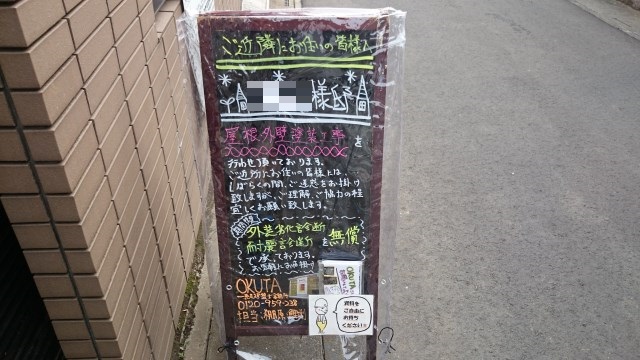 ご近隣にお住いの皆様へ
様邸
屋根外壁塗装工事を
行わせ頂いております。
ご近所にお住いの皆様には、
しばらくの間、ご迷惑をお掛け
致しますが、ご理解、ご協力の程
宜しくお願い致します。
外装劣化診断
耐震診断を無償
で承っております。
OKUTA
0120-959-038
担当
資料を
ご自由に
お持ち
ください!!